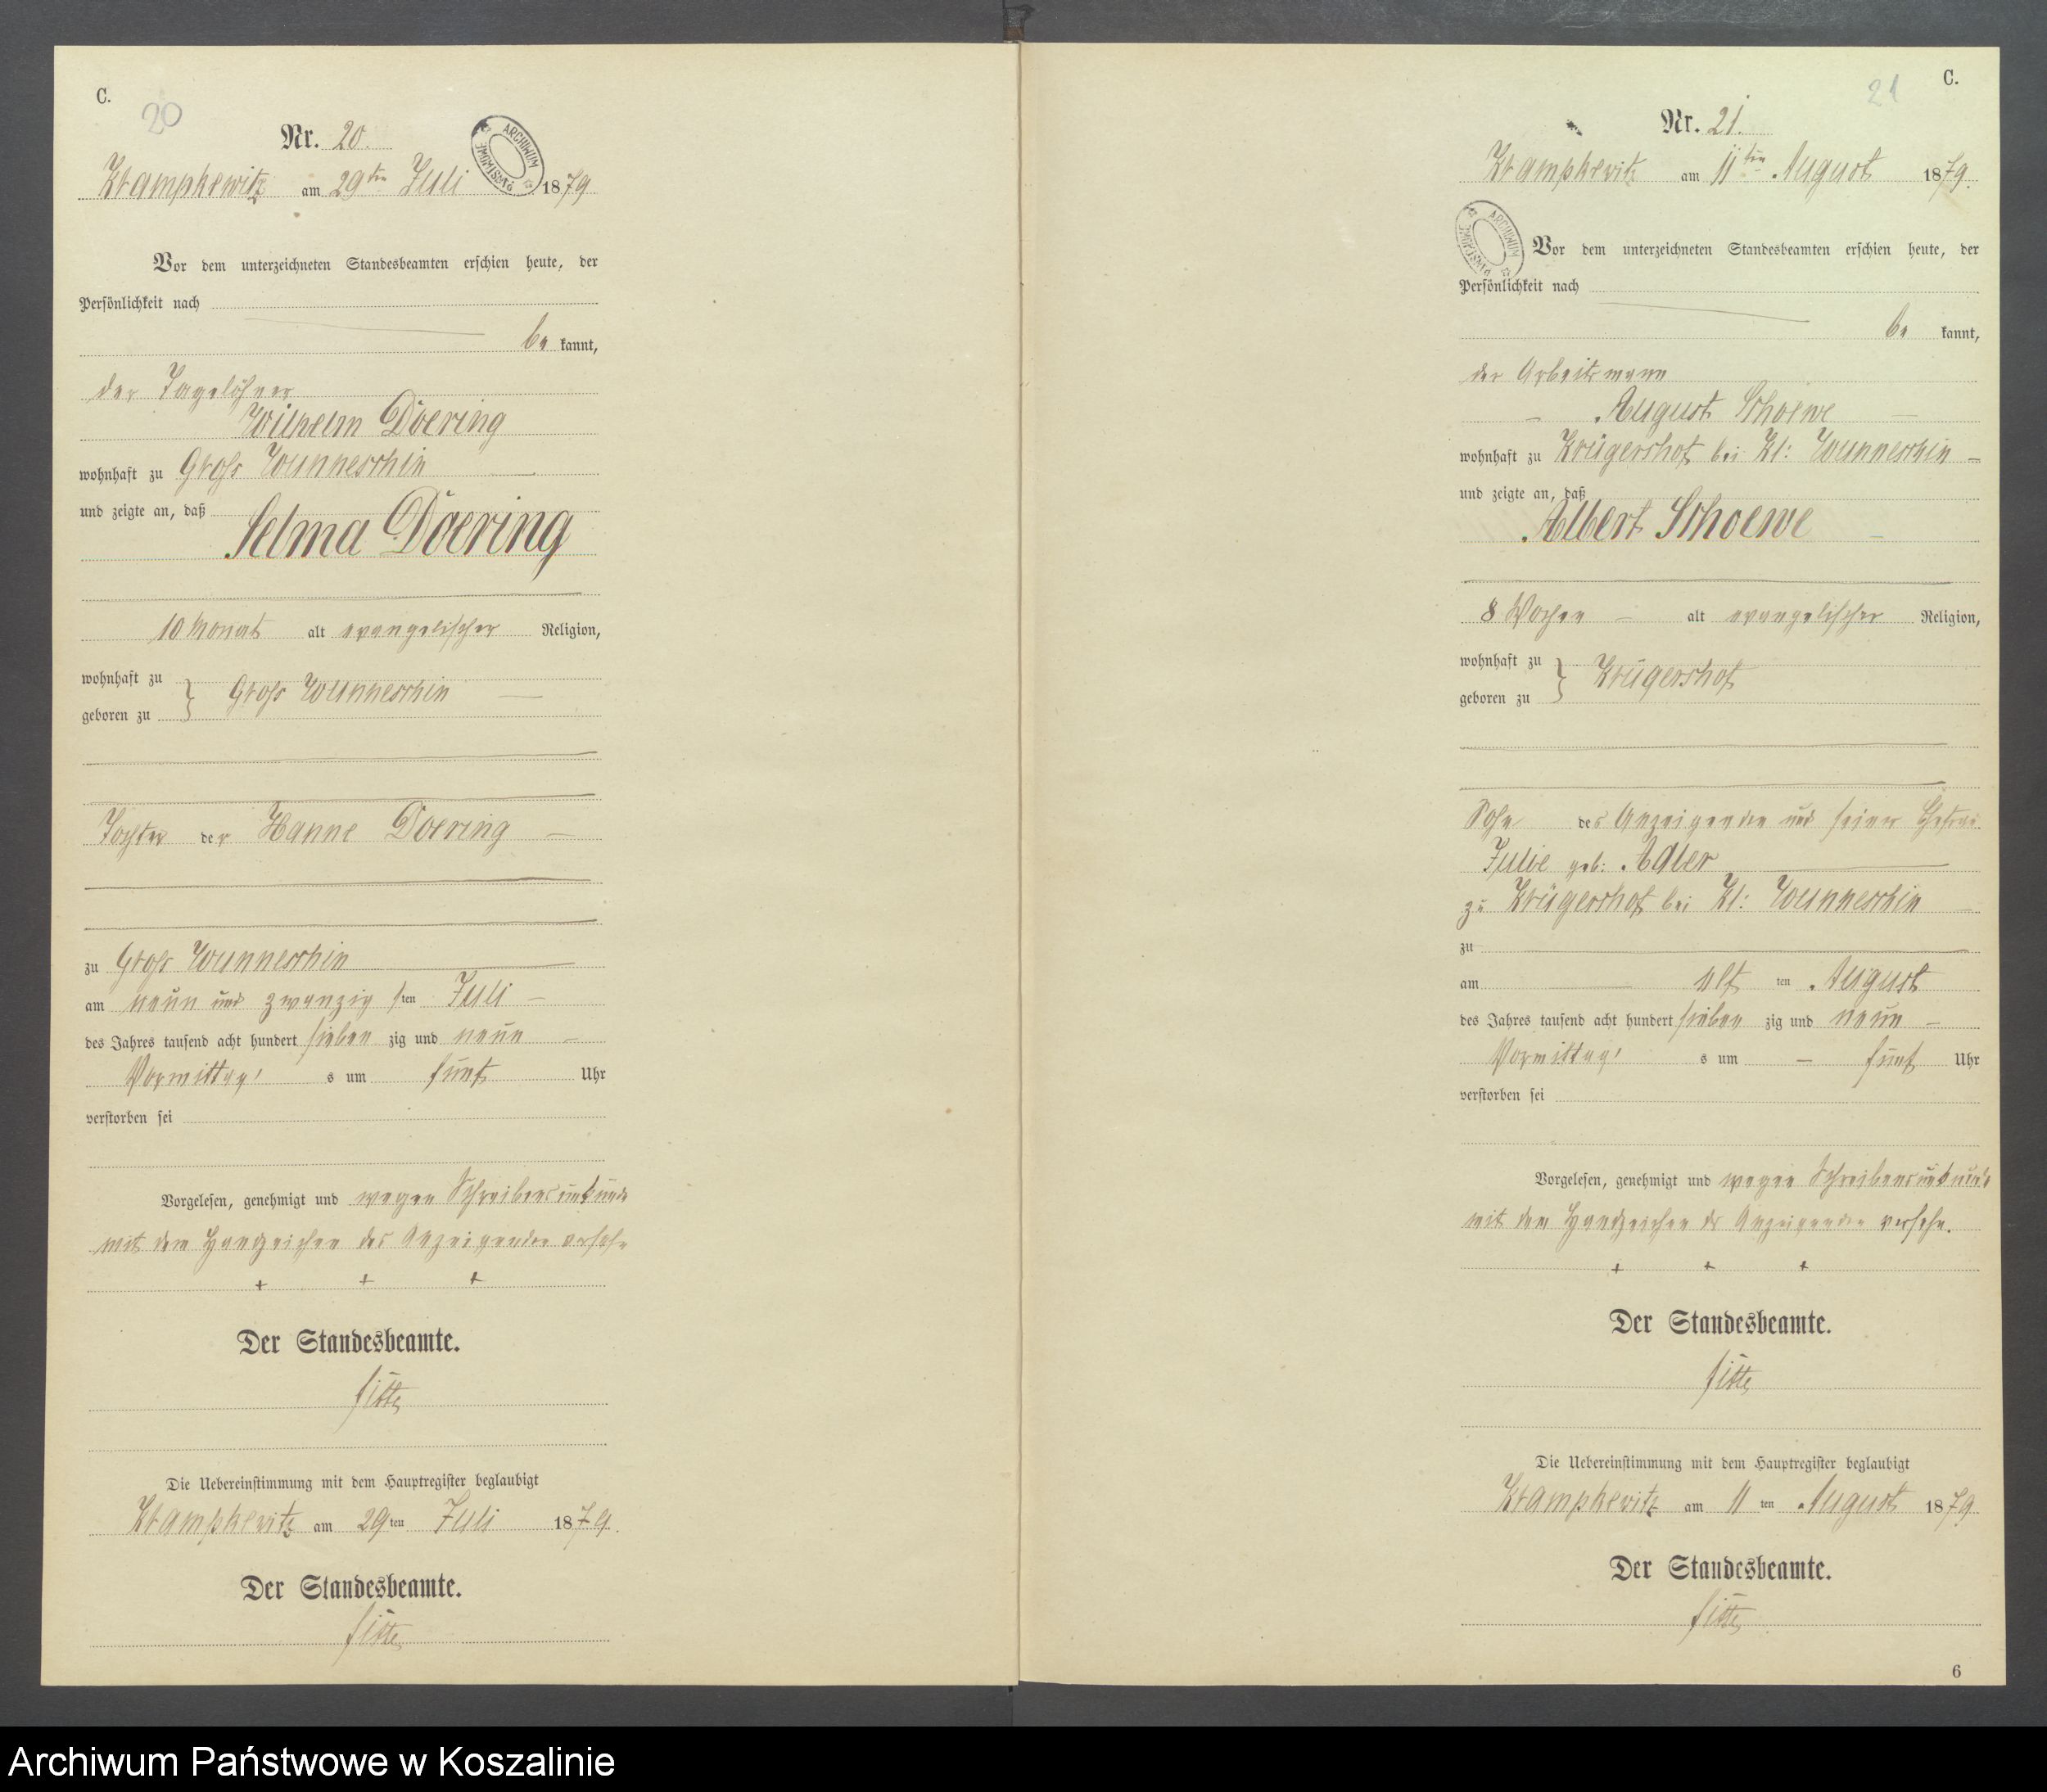 C.
20
Nr. 20.
ARCHIWUM PAŃSTWOWE
Krampkewitz am 29ten Juli 1879
Vor dem unterzeichneten Standesbeamten erschien heute, der
Persönlichkeit nach
be kannt,
der Tagelöhner
Wilhelm Doering
wohnhaft zu Groß Wunneschin
und zeigte an, daß
Selma Doering
10 Monat alt evangelischer Religion,
wohnhaft zu
geboren zu } Groß Wunneschin
Tochter der Hanne Doering
zu Groß Wunneschin
am neun und zwanzig sten Juli
des Jahres tausend acht hundert sieben zig und neun
Vormittag s um fünf Uhr
verstorben sei
Vorgelesen, genehmigt und wegen Schreibensunkunde
mit dem Handzeichen des Anzeigenden versehn
+ + +
Der Standesbeamte.
Die Uebereinstimmung mit dem Hauptregister beglaubigt
Krampkewitz am 29ten Juli 1879.
Der Standesbeamte.
C.
21
Nr. 21.
Krampkewitz am 11ten August 1879.
ARCHIWUM PAŃSTWOWE
Vor dem unterzeichneten Standesbeamten erschien heute, der
Persönlichkeit nach
be kannt,
der Arbeitsmann
August Schoewe
wohnhaft zu Krügershof bei Kl: Wunneschin
und zeigte an, daß
Albert Schoewe
8 Wochen alt evangelischer Religion,
wohnhaft zu
geboren zu } Krügershof
Sohn des Anzeigenden und seiner Ehefrau
Julie geb: Adler
zu Krügershof bei Kl: Wunneschin
zu
am elf ten August
des Jahres tausend acht hundert sieben zig und neun
Vormittag s um fünf Uhr
verstorben sei
Vorgelesen, genehmigt und wegen Schreibensunkunde
mit dem Handzeichen des Anzeigenden versehn.
+ + +
Der Standesbeamte.
Die Uebereinstimmung mit dem Hauptregister beglaubigt
Krampkewitz am 11 ten August 1879
Der Standesbeamte.
6
Archiwum Państwowe w Koszalinie